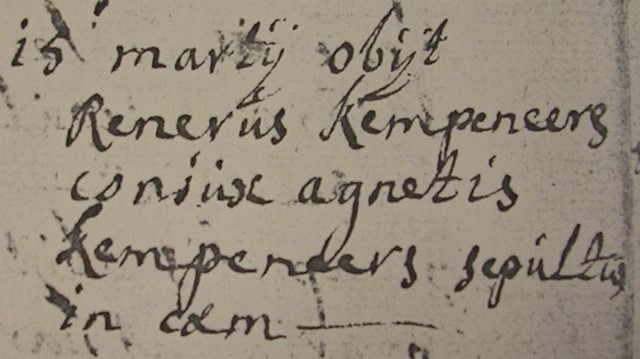 15 martij obijt
Renerus Kempeneers
coniux agnetis
Kempeneers sepultus
in cœm